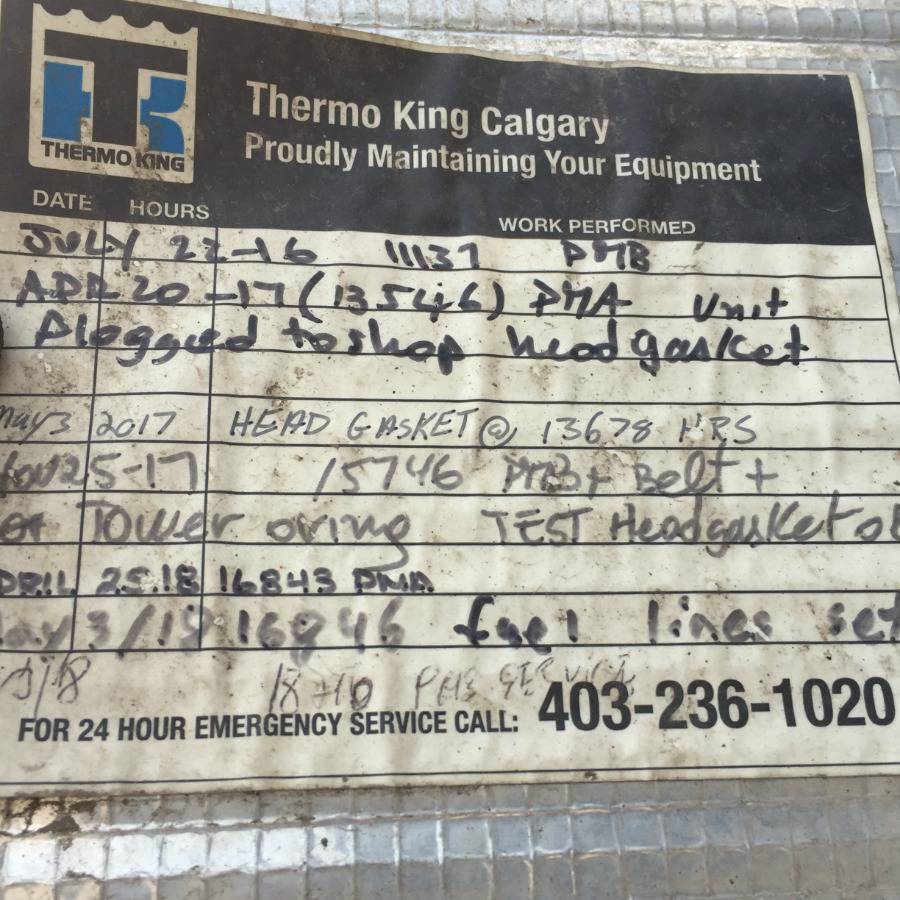 THERMO KING
Thermo King Calgary
Proudly Maintaining Your Equipment
DATE HOURS WORK PERFORMED
JULY 22-16 11137 PMB
APR 20-17 (13546) PMA Unit
Plogged to shop head gasket
May 3 2017 HEAD GASKET @ 13678 HRS
Nov 25-17 15746 PMB+ Belt +
Tower oring TEST Headgasket ok
APRIL 25.18 16843 PMA
May 3/18 16846 fuel lines set
SERVICE
FOR 24 HOUR EMERGENCY SERVICE CALL: 403-236-1020